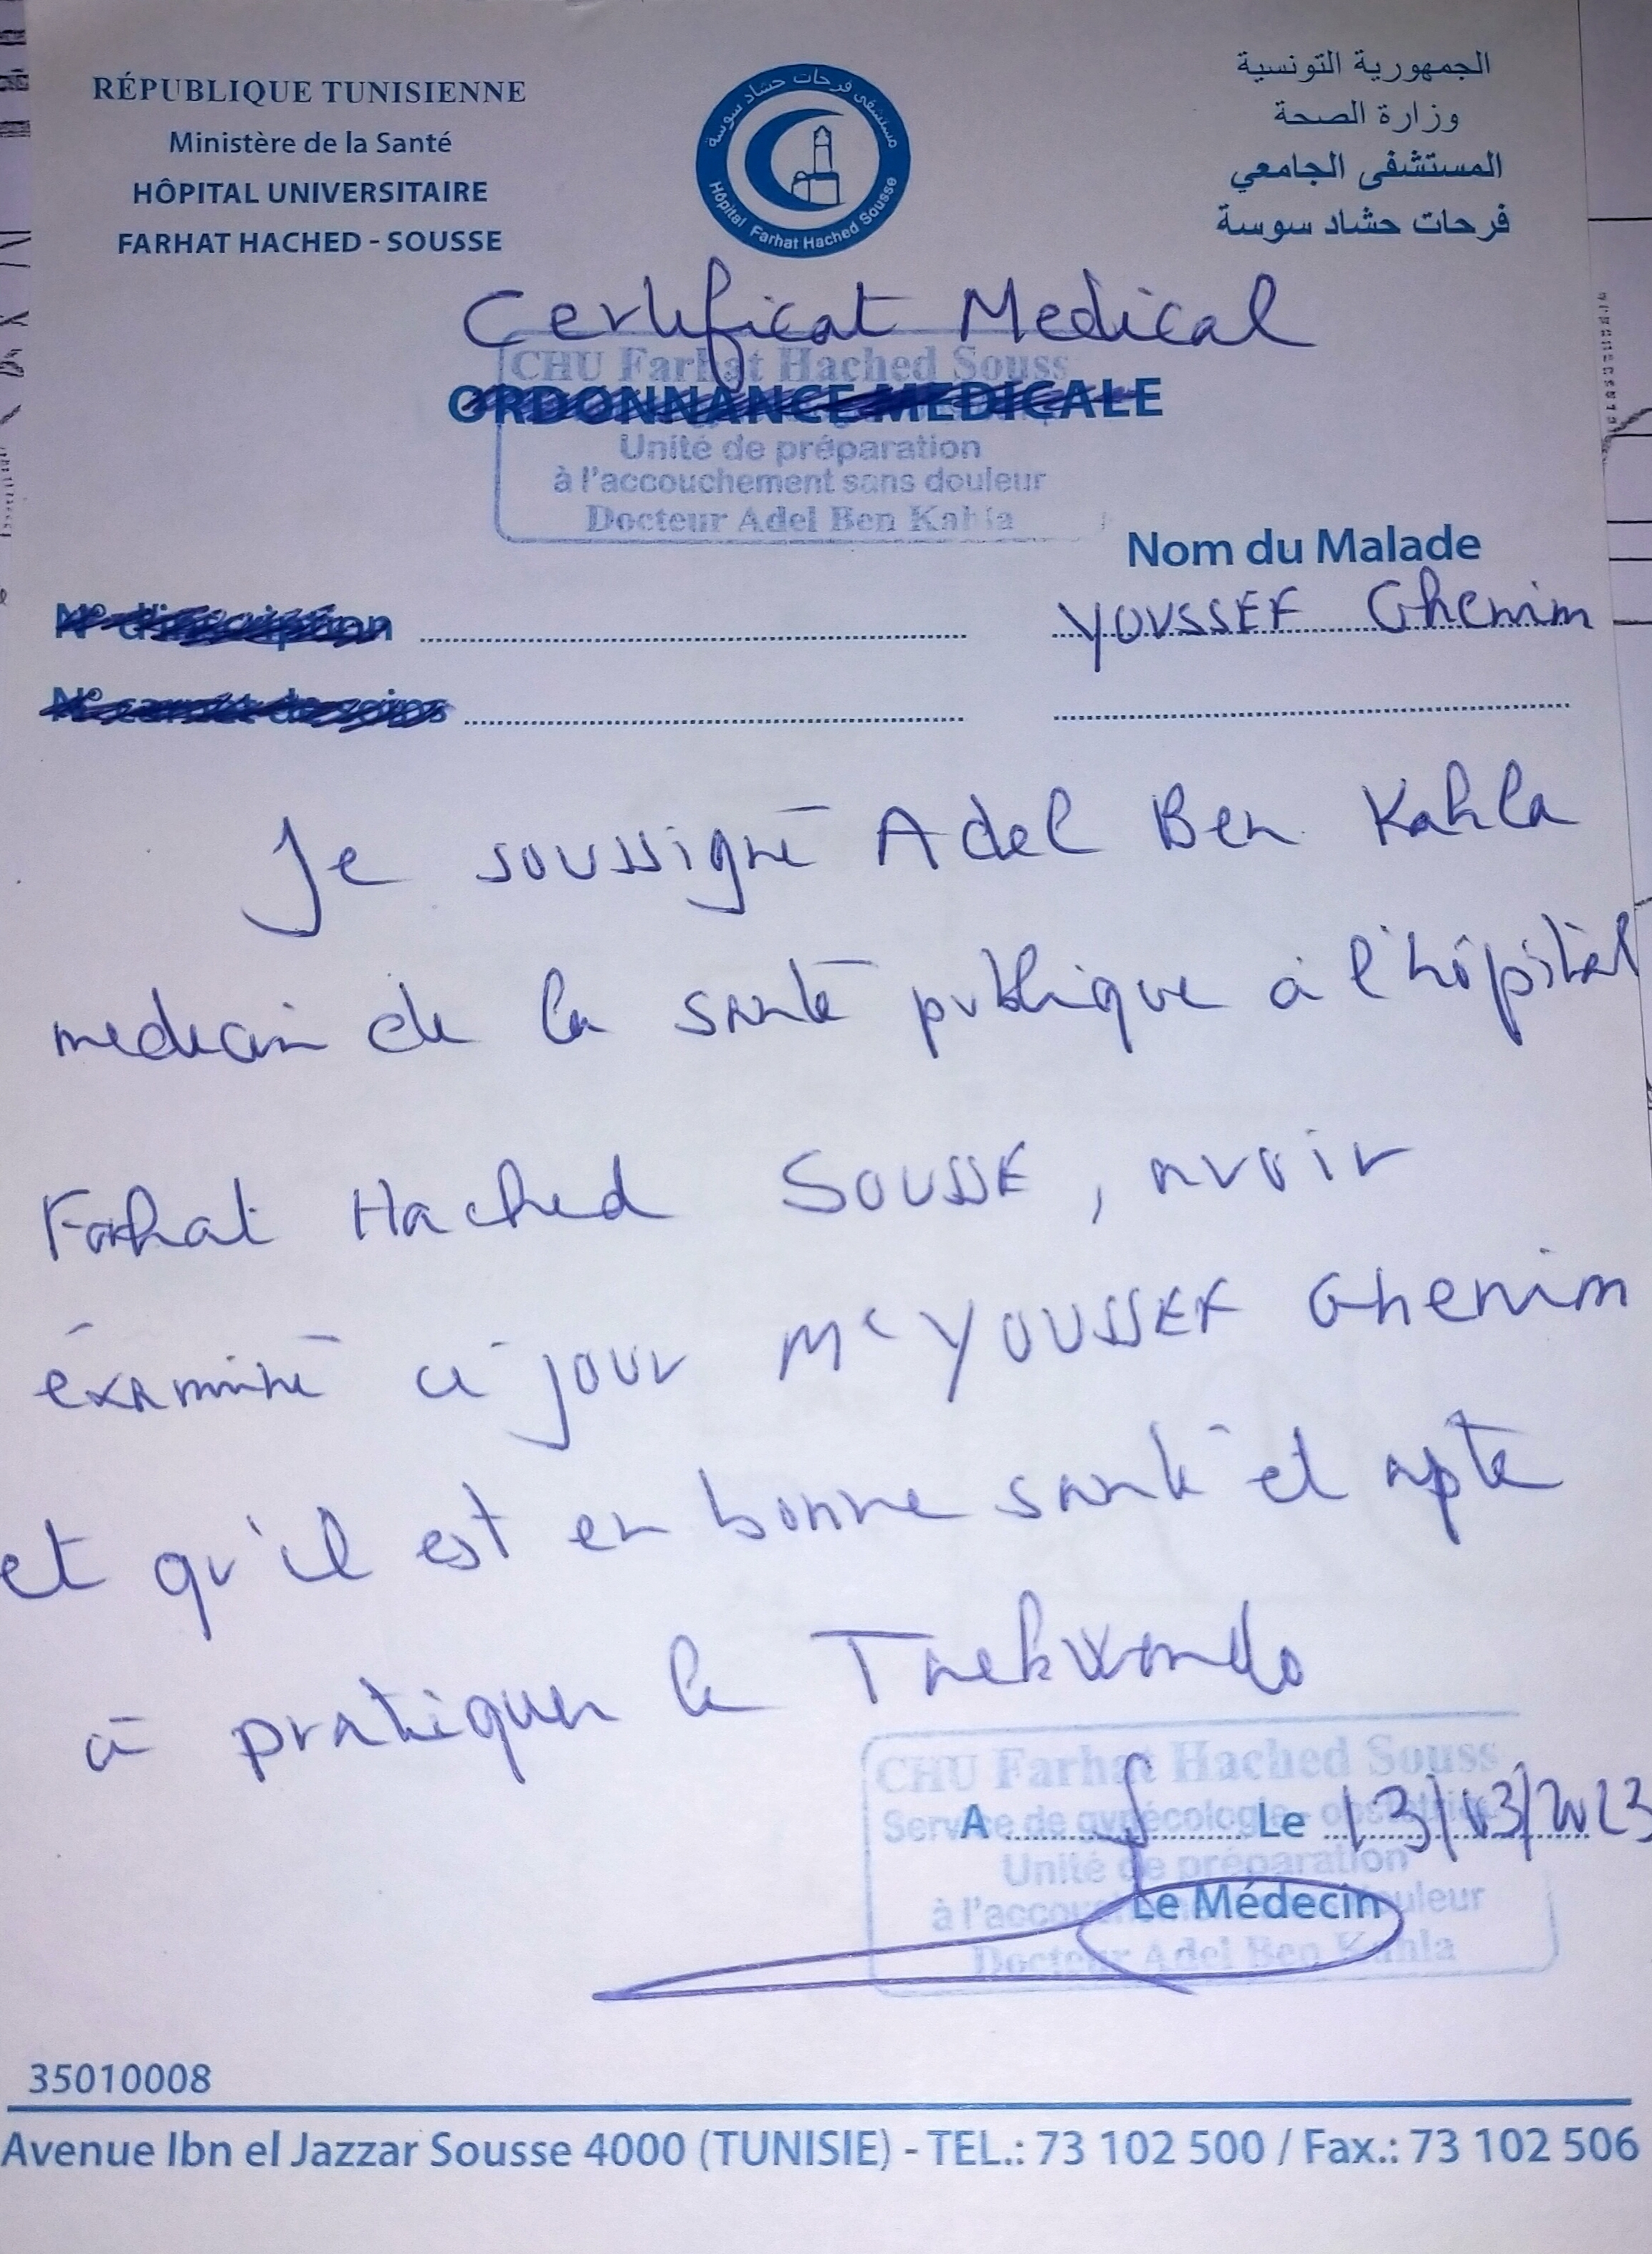 RÉPUBLIQUE TUNISIENNE
Ministère de la Santé
HÔPITAL UNIVERSITAIRE
FARHAT HACHED - SOUSSE
مستشفى فرحات حشاد سوسة
Hôpital Farhat Hached Sousse
الجمهورية التونسية
وزارة الصحة
المستشفى الجامعي
فرحات حشاد سوسة
Certificat Medical
CHU Farhat Hached Souss
ORDONNANCE MEDICALE
Unité de préparation
à l'accouchement sans douleur
Docteur Adel Ben Kahla
Nom du Malade
N° d'inscription
YOUSSEF Ghenim
N° carnet de soins
Je soussigné Adel Ben Kahla
medecin de la santé publique à l'hôpital
Farhat Hached SOUSSE, avoir
éxaminé ce jour Mr YOUSSEF Ghenim
et qu'il est en bonne santé et apte
à pratiquer le Taekwondo
CHU Farhat Hached Souss
Service de gynécologie - obstétrique
A Le 13/03/2023
Unité de préparation
Le Médecin
à l'accouchement sans douleur
Docteur Adel Ben Kahla
35010008
Avenue Ibn el Jazzar Sousse 4000 (TUNISIE) - TEL.: 73 102 500 / Fax.: 73 102 506